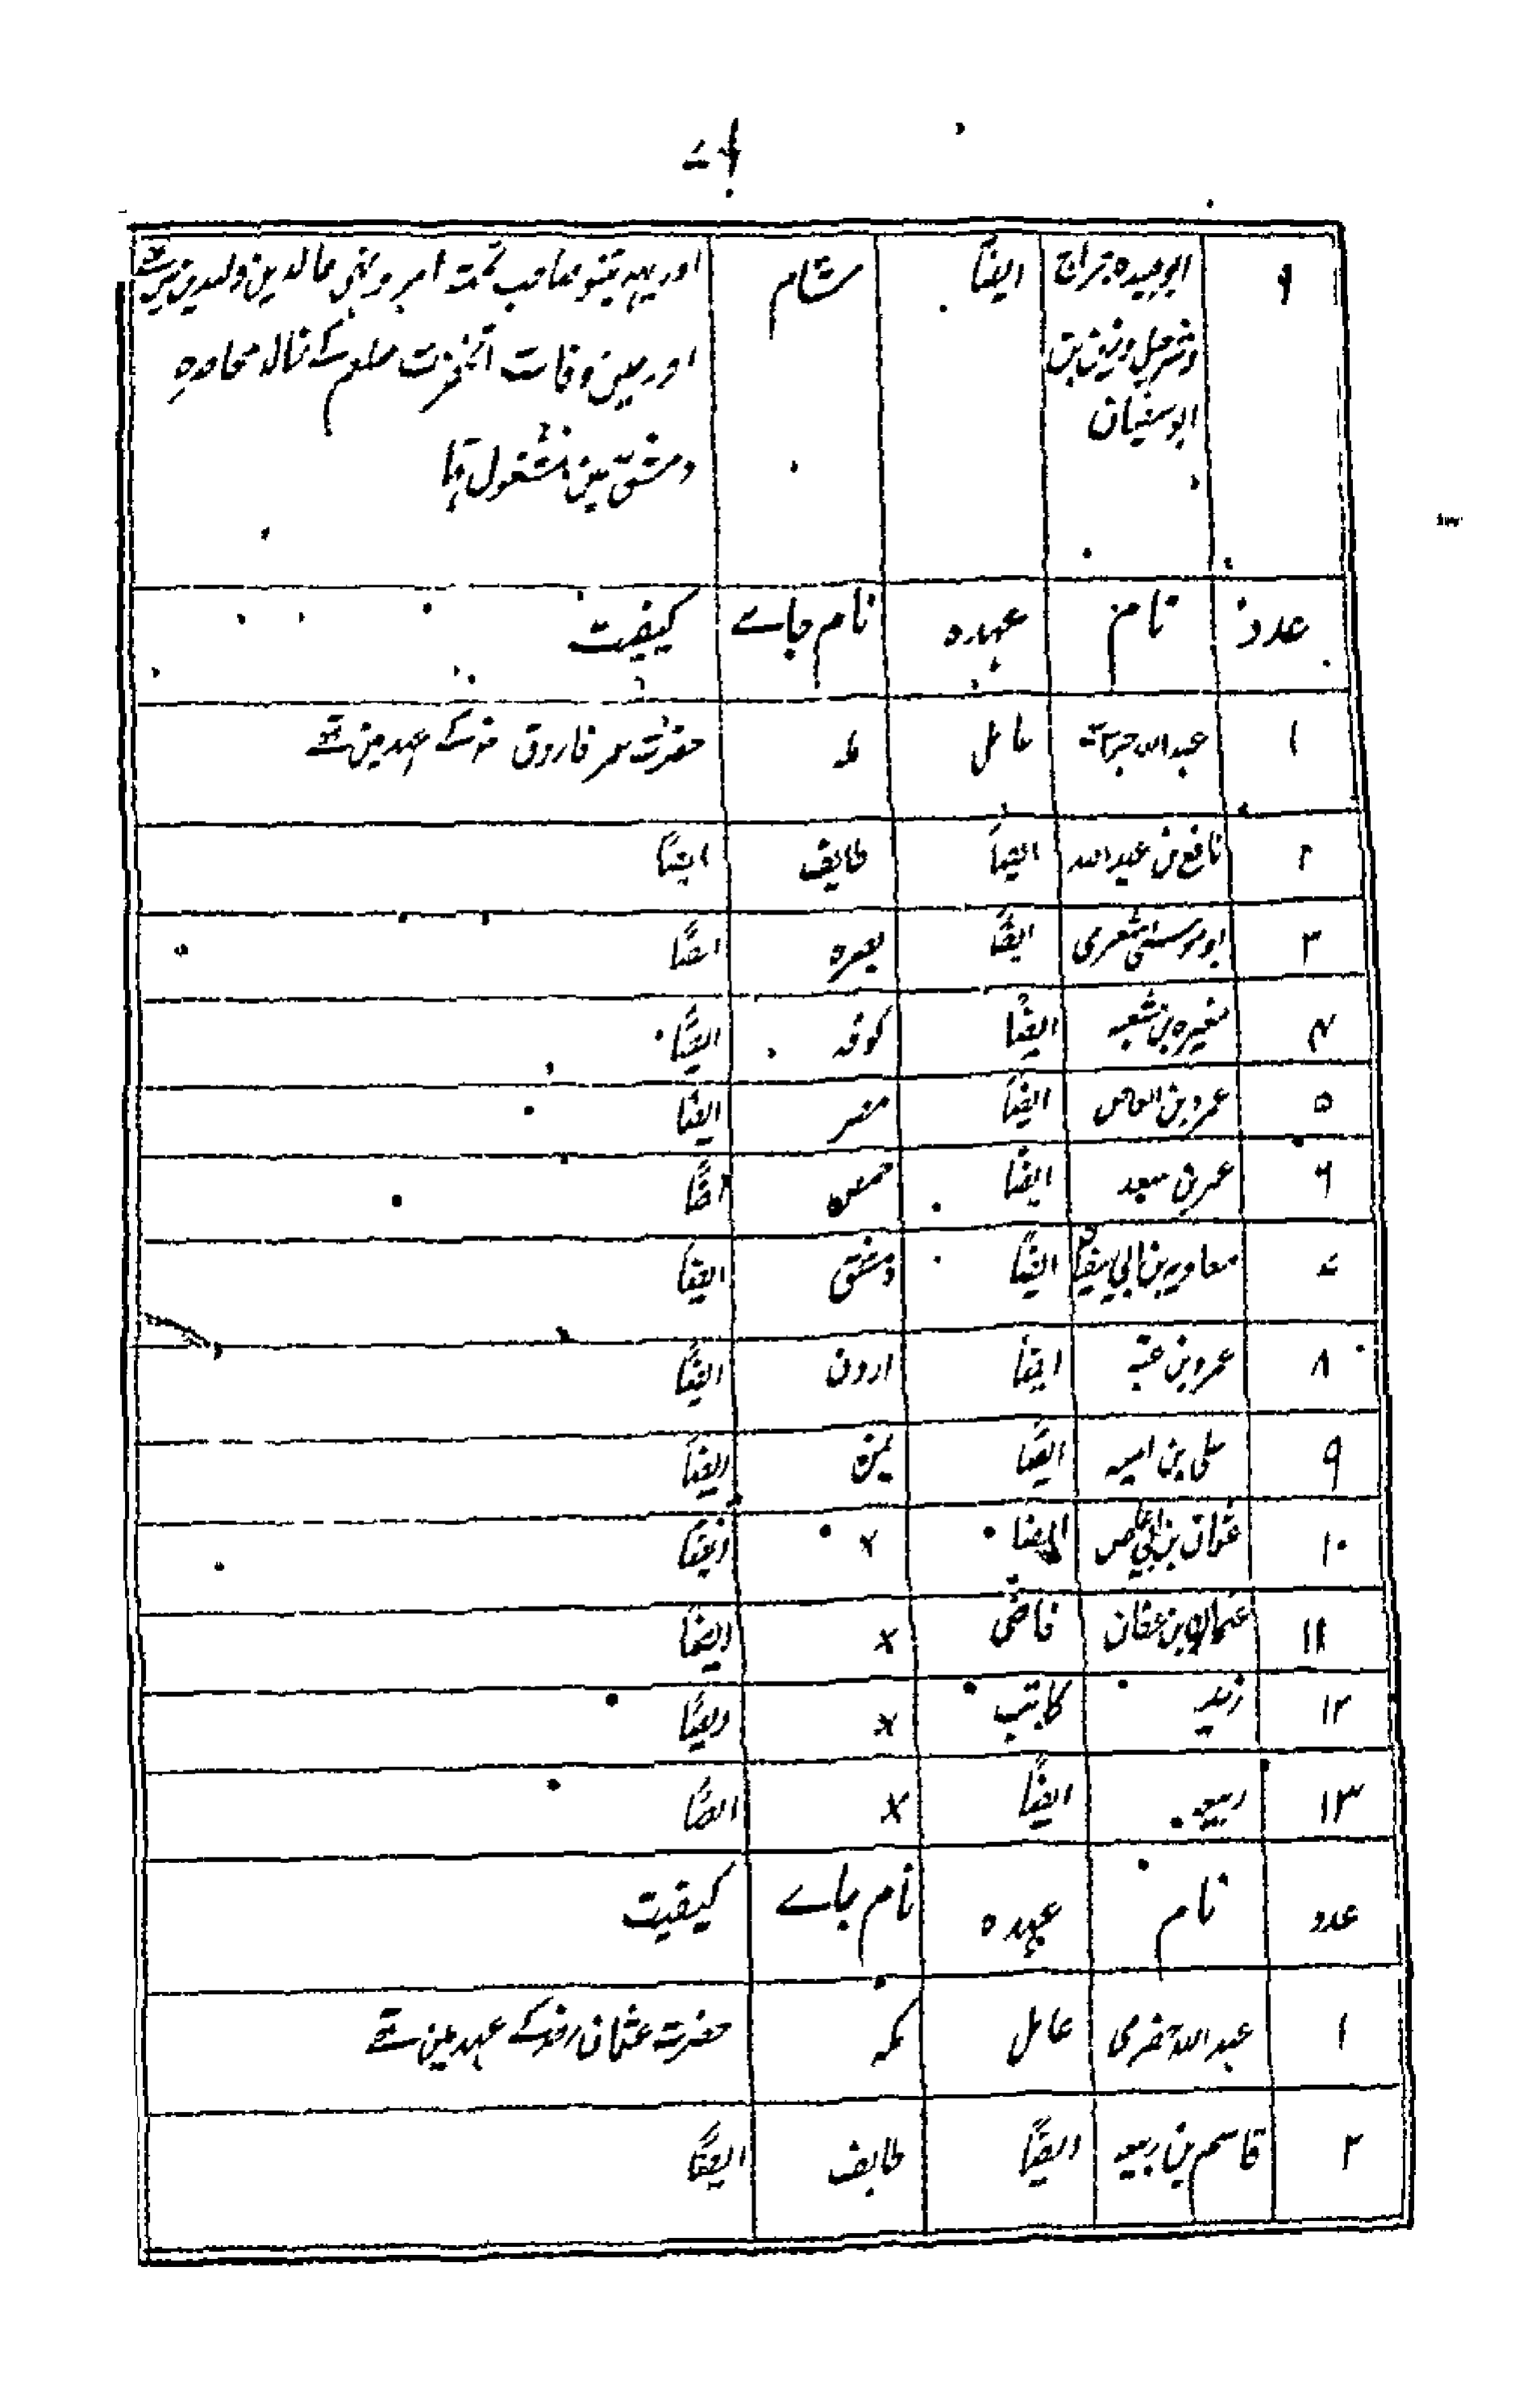 ۷
۹ ابو عبیدہ جراح ایضاً شام اور یہہ تینو صاحب تحت امر و نہی خالد بن ولید تھے
و شرحبیل و یزید بن اور حین وفات آنحضرت صلعم کے خالد محاصرہ
ابوسفیان دمشق مین مشغول تہا
عدد نام عہدہ نام جاے کیفیت
۱ عبداللہ عامل مکہ حضرت عمر فاروق رضہ کے عہد مین تھے
۲ نافع بن عبداللہ ایضاً طایف ایضاً
۳ ابوموسی اشعری ایضاً بصرہ ایضاً
۴ مغیرہ بن شعبہ ایضاً کوفہ ایضاً
۵ عمرو بن العاص ایضاً مصر ایضاً
۶ عمر بن سعد ایضاً حمص ایضاً
۷ معاویہ بن ابی سفیان ایضاً دمشق ایضاً
۸ عمرو بن عتبہ ایضاً اردن ایضاً
۹ بن امیہ ایضاً یمن ایضاً
۱۰ عثمان بن ابی العاص ایضاً x ایضاً
۱۱ عثمان بن عفان قاضی x ایضاً
۱۲ زید کاتب x ایضاً
۱۳ ربیعہ ایضاً x ایضاً
عدد نام عہدہ نام جاے کیفیت
۱ عبداللہ حضرمی عامل مکہ حضرت عثمان رضہ کے عہد مین تھے
۲ قاسم بن ربیعہ ایضاً طایف ایضاً